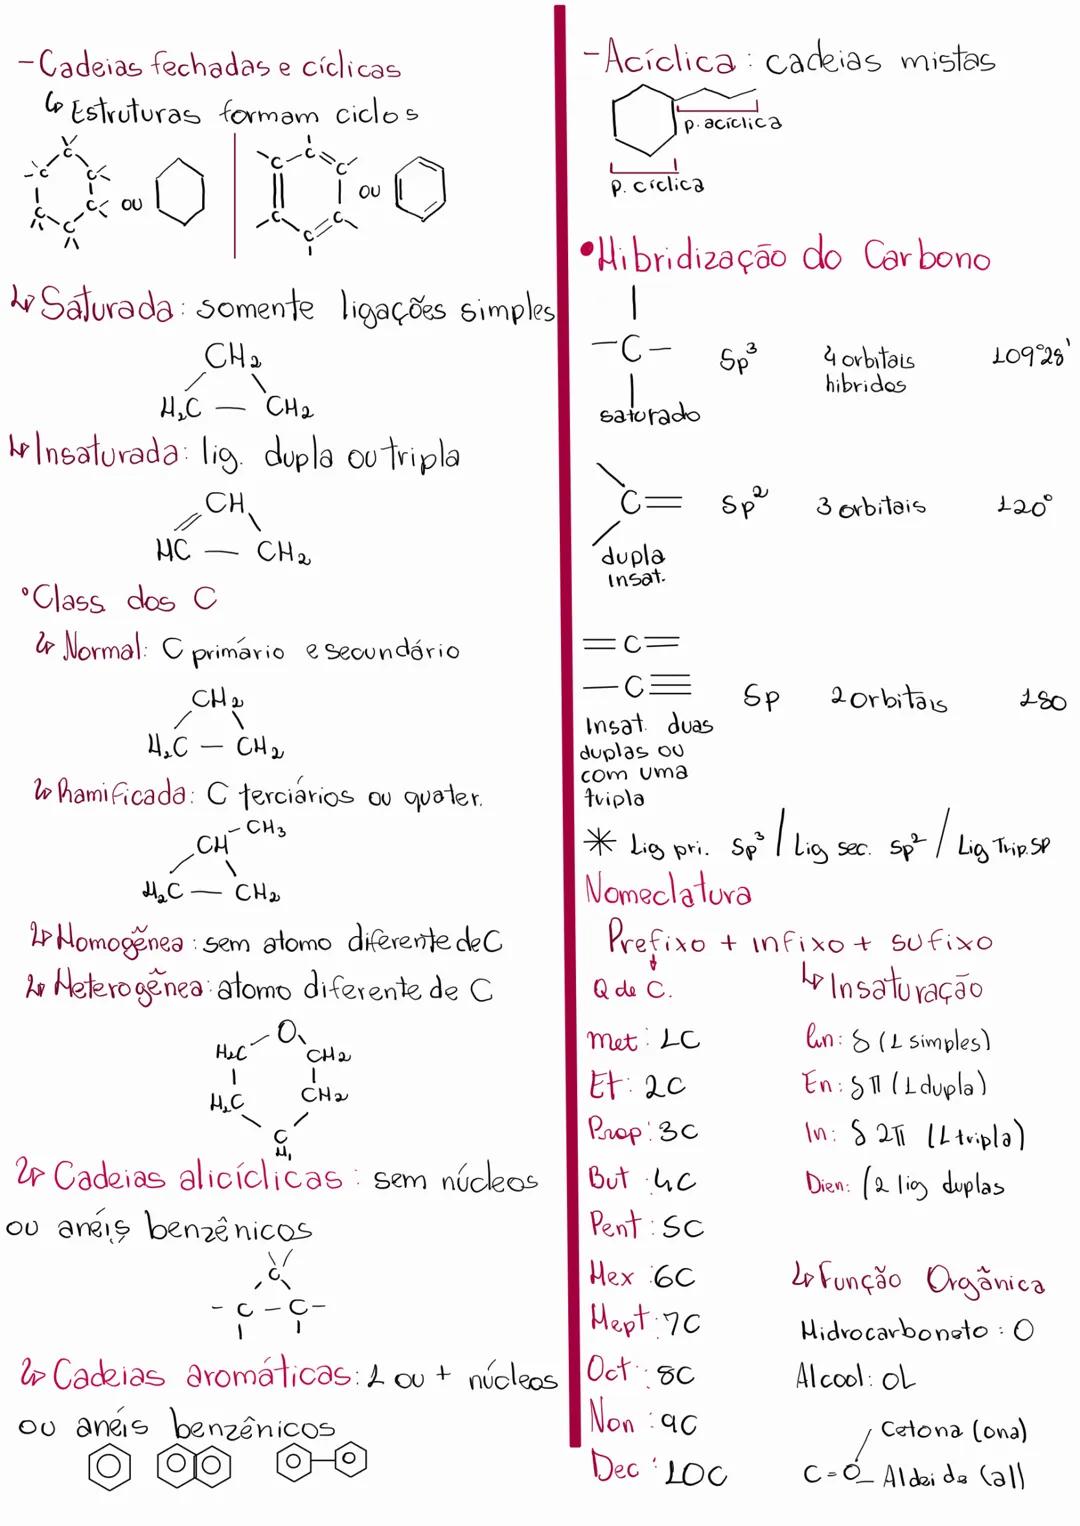 -Cadeias fechadas e cíclicas
↳ Estruturas formam ciclos
C C C C C C ou
C C C C C C ou
↳ Saturada: somente ligações simples
CH₂
H₂C — CH₂
↳ Insaturada: lig. dupla ou tripla
CH
HC — CH₂
°Class dos C
↳ Normal: C primário e secundário
CH₂
H₂C — CH₂
↳ Ramificada: C terciários ou quater.
CH - CH₃
H₂C — CH₂
↳ Homogênea: sem atomo diferente de C
↳ Heterogênea: atomo diferente de C
O
H₂C CH₂
H₂C CH₂
C
H₂
↳ Cadeias alicíclicas: sem núcleos
ou anéis benzênicos
C
- C - C -
↳ Cadeias aromáticas: 1 ou + núcleos
ou anéis benzênicos
-Acíclica: cadeias mistas
p. acíclica
p. cíclica
•Hibridização do Carbono
-C- Sp³ 4 orbitais 109°28'
hibridos
saturado
C= Sp² 3 orbitais 120°
dupla
insat.
=C=
-C≡ Sp 2 orbitais 180
Insat. duas
duplas ou
com uma
tripla
* Lig pri. Sp³ / Lig sec. Sp² / Lig Trip. SP
Nomeclatura
Prefixo + infixo + sufixo
Q de C. ↳ Insaturação
Met: 1C An: δ (1 simples)
Et: 2C En: δ π (1 dupla)
Prop: 3C In: δ 2π (1 tripla)
But: 4C Dien: (2 lig duplas
Pent: 5C
Hex: 6C ↳ Função Orgânica
Hept: 7C Hidrocarboneto: O
Oct: 8C Alcool: OL
Non: 9C Cetona (ona)
Dec: 10C C=O Aldeido (al)